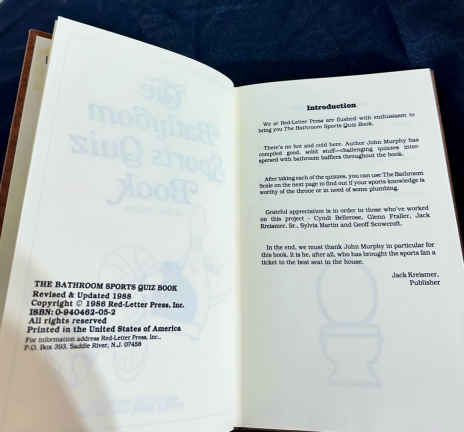 THE BATHROOM SPORTS QUIZ BOOK
Revised & Updated 1988
Copyright © 1986 Red-Letter Press, Inc.
ISBN: 0-940462-05-2
All rights reserved
Printed in the United States of America
For information address Red-Letter Press, Inc.,
P.O. Box 393, Saddle River, N.J. 07458
Introduction
We at Red-Letter Press are flushed with enthusiasm to
bring you The Bathroom Sports Quiz Book.
There's no hot and cold here. Author John Murphy has
compiled good, solid stuff—challenging quizzes inter-
spersed with bathroom bafflers throughout the book.
After taking each of the quizzes, you can use The Bathroom
Scale on the next page to find out if your sports knowledge is
worthy of the throne or in need of some plumbing.
Grateful appreciation is in order to those who've worked
on this project - Cyndi Bellerose, Glenn Fraller, Jack
Kreismer, Sr., Sylvia Martin and Geoff Scowcroft.
In the end, we must thank John Murphy in particular for
this book. It is he, after all, who has brought the sports fan a
ticket to the best seat in the house.
Jack Kreismer,
Publisher